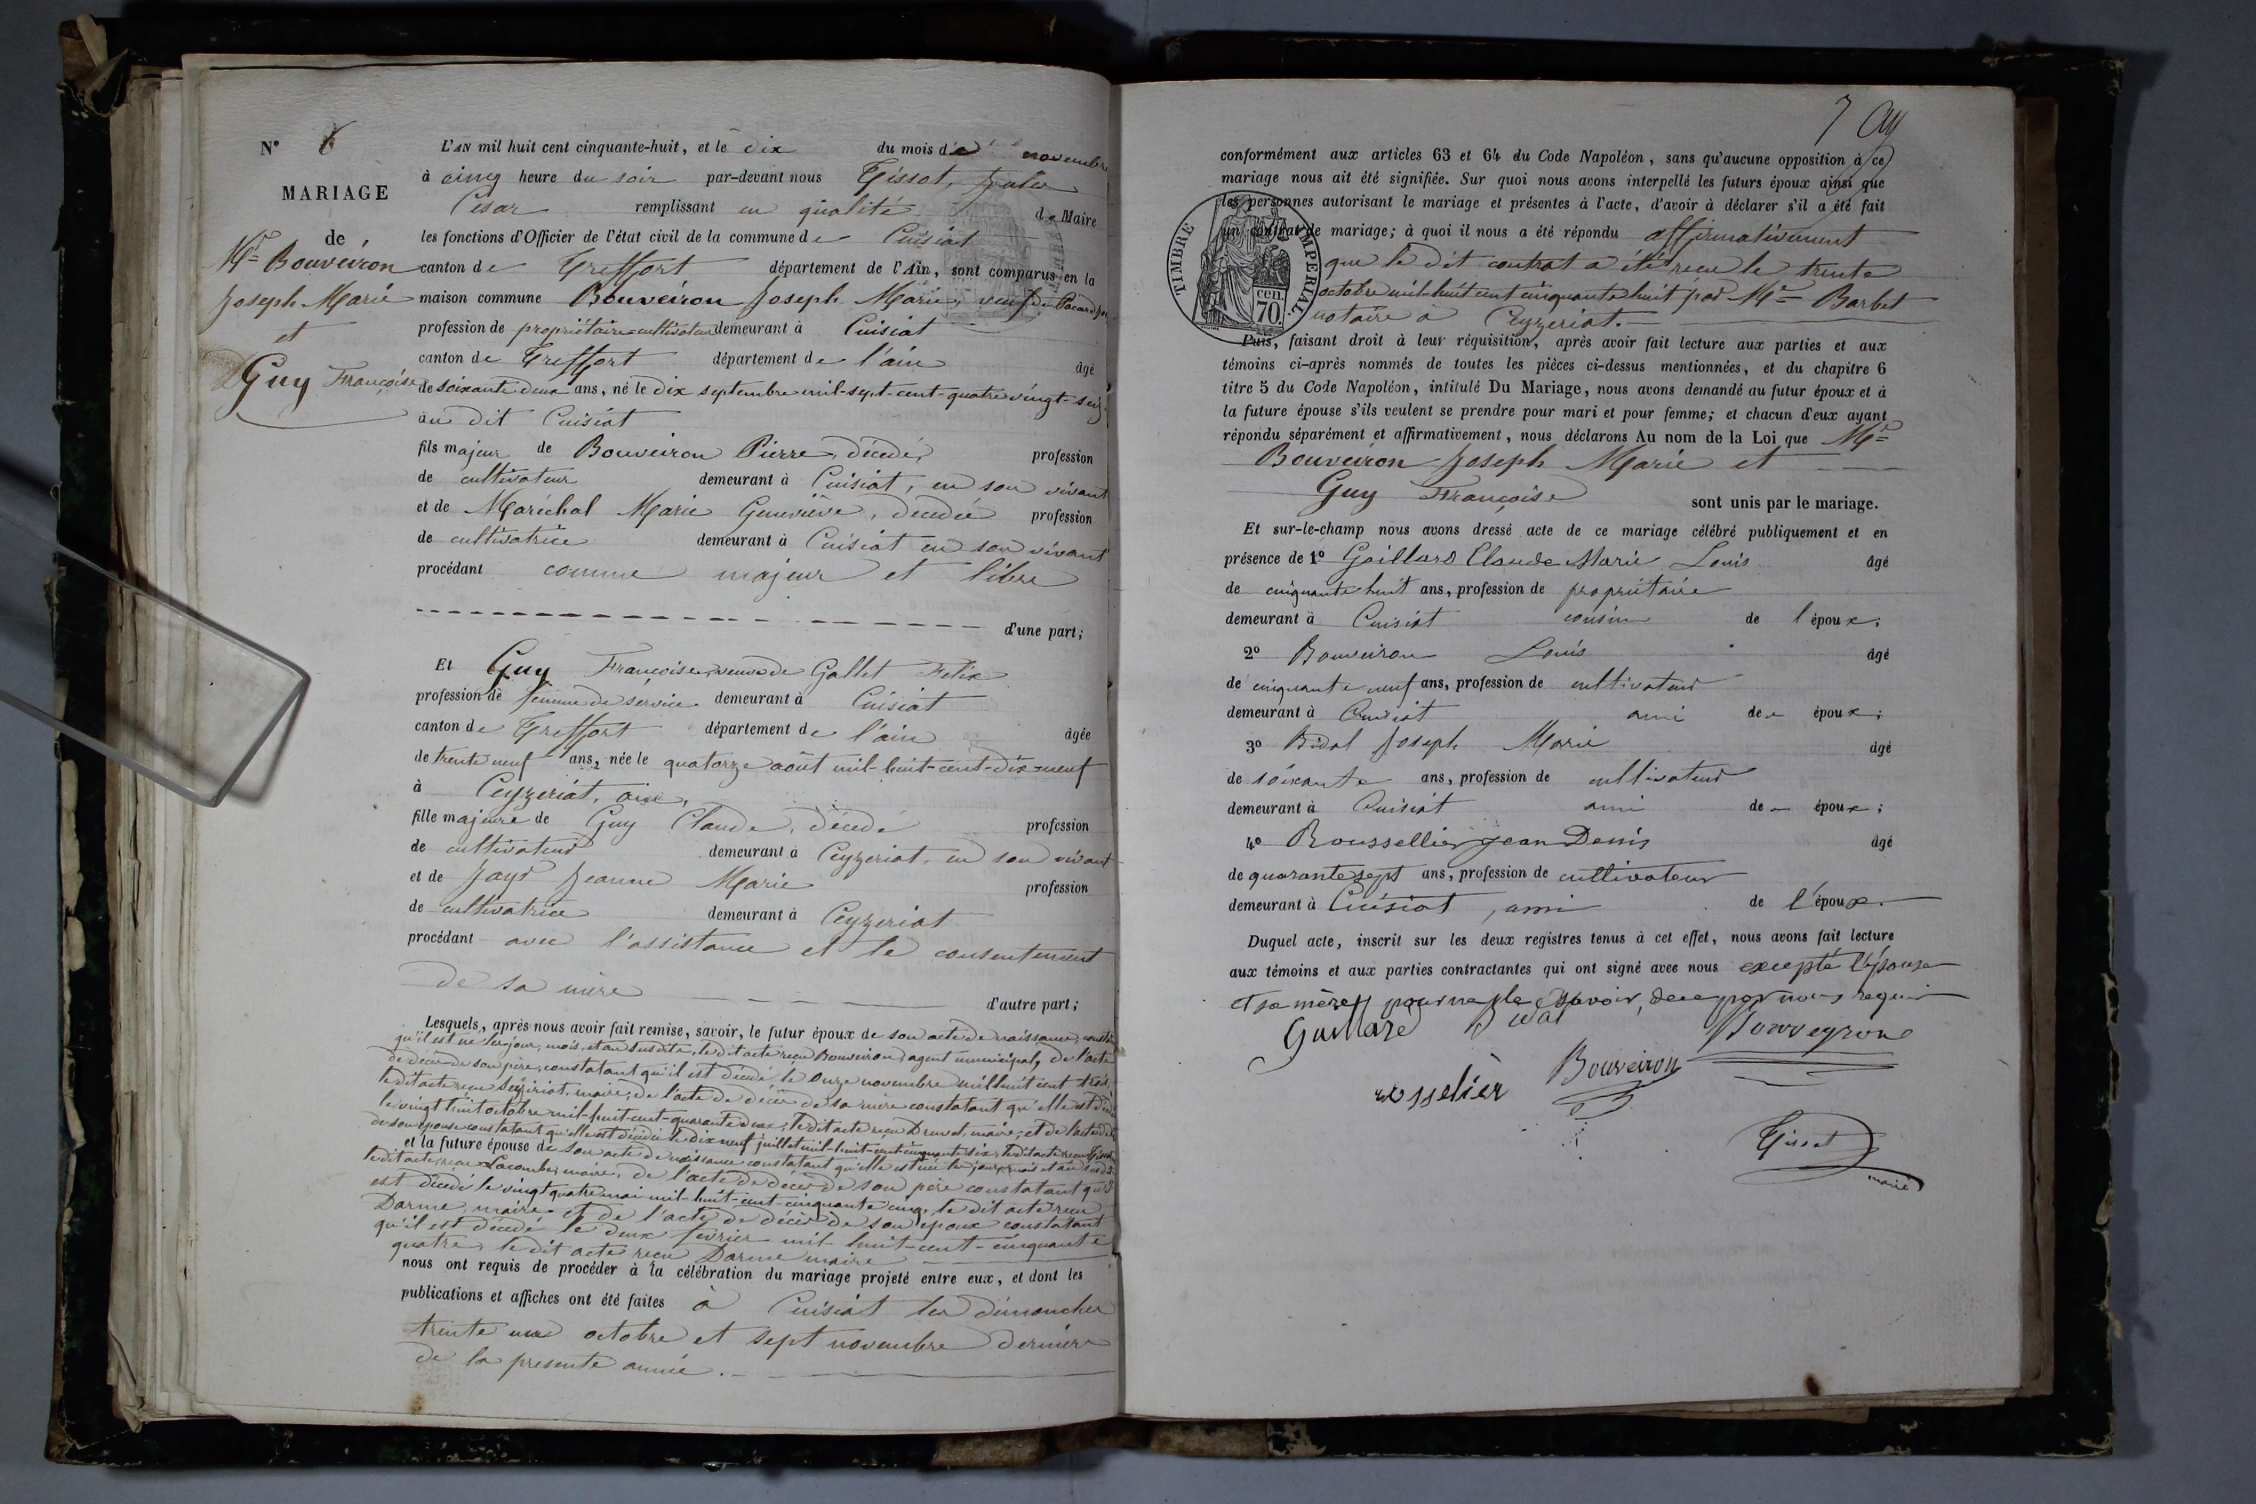 N° 6
MARIAGE
de
Mr Bouveiron
Joseph Marie
et
Guy Françoise
L'AN mil huit cent cinquante-huit, et le dix du mois de novembre
à cinq heure du soir par-devant nous Tissot, Jules
César remplissant en qualité de Maire
les fonctions d'Officier de l'état civil de la commune de Cuisiat
canton de Treffort département de l'Ain, sont comparus en la
maison commune Bouveiron Joseph Marie, veuf de
profession de propriétaire-cultivateur demeurant à Cuisiat
canton de Treffort département de l'ain âgé
de soixante deux ans, né le dix septembre mil-sept-cent-quatre vingt-seize
au dit Cuisiat
fils majeur de Bouveiron Pierre, décédé, profession
de cultivateur demeurant à Cuisiat, en son vivant
et de Maréchal Marie Geneviève, décédée profession
de cultivatrice demeurant à Cuisiat en son vivant
procédant comme majeur et libre
d'une part;
Et Guy Françoise, veuve de Gallet Felix
profession de femme de service demeurant à Cuisiat
canton de Treffort département de l'ain âgée
de trente neuf ans, née le quatorze août mil-huit-cent-dix-neuf
à Ceyzeriat, ain,
fille majeure de Guy Claude, décédé profession
de cultivateur demeurant à Ceyzeriat, en son vivant
et de Jayr Jeanne Marie profession
de cultivatrice demeurant à Ceyzeriat
procédant avec l'assistance et le consentement
de sa mère d'autre part;
Lesquels, après nous avoir fait remise, savoir, le futur époux de son acte de naissance,
qu'il est né les jour, mois, et an susdits, le dit acte reçu Bouveiron, agent municipal, de l'acte
de décès de son père, constatant qu'il est décédé le onze novembre mil huit cent trois,
le dit acte reçu maire, de l'acte de décès de sa mère constatant qu'elle est
le vingt huit octobre mil-huit-cent-quarante deux, le dit acte reçu Druvet, maire, et de l'acte de
de son épouse constatant qu'elle est décédée le dix neuf juillet mil-huit-cent-cinquante six, le dit acte reçu
et la future épouse de son acte de naissance constatant qu'elle est née les jour, mois et an
le dit acte reçu Lacombe, maire, de l'acte de décès de son père constatant qu'il
est décédé le vingt quatre mai mil-huit-cent-cinquante cinq, le dit acte reçu
Darme, maire et de l'acte de décès de son époux constatant
qu'il est décédé le deux fevrier mil huit-cent-cinquante
quatre, le dit acte reçu Darme maire
nous ont requis de procéder à la célébration du mariage projeté entre eux, et dont les
publications et affiches ont été faites à Cuisiat les dimanches
trente un octobre et sept novembre derniers
de la presente année.
7
conformément aux articles 63 et 64 du Code Napoléon, sans qu'aucune opposition à ce
mariage nous ait été signifiée. Sur quoi nous avons interpellé les futurs époux ainsi que
les personnes autorisant le mariage et présentes à l'acte, d'avoir à déclarer s'il a été fait
un contrat de mariage; à quoi il nous a été répondu affirmativement
TIMBRE IMPERIAL
70 cen.
que le dit contrat a été reçu le trente
octobre mil-huit cent cinquante huit par Mr Barbet
notaire à Ceyzeriat.
Puis, faisant droit à leur réquisition, après avoir fait lecture aux parties et aux
témoins ci-après nommés de toutes les pièces ci-dessus mentionnées, et du chapitre 6
titre 5 du Code Napoléon, intitulé Du Mariage, nous avons demandé au futur époux et à
la future épouse s'ils veulent se prendre pour mari et pour femme; et chacun d'eux ayant
répondu séparément et affirmativement, nous déclarons Au nom de la Loi que Mr
Bouveiron Joseph Marie et
Guy Françoise sont unis par le mariage.
Et sur-le-champ nous avons dressé acte de ce mariage célébré publiquement et en
présence de 1° Gaillard Claude Marie Louis âgé
de cinquante huit ans, profession de propriétaire
demeurant à Cuisiat cousin de l'époux;
2° Bouveiron Louis âgé
de cinquante neuf ans, profession de cultivateur
demeurant à Cuisiat ami de époux;
3° Bidal Joseph Marie âgé
de soixante ans, profession de cultivateur
demeurant à Cuisiat ami de époux;
4° Roussellier Jean Denis âgé
de quarante sept ans, profession de cultivateur
demeurant à Cuisiat, ami de l'époux.
Duquel acte, inscrit sur les deux registres tenus à cet effet, nous avons fait lecture
aux témoins et aux parties contractantes qui ont signé avec nous excepté l'épouse
et sa mère, pour ne le savoir, de ce par nous requis
Gaillard Bidal Bouveyron
Bouveiron
Tissot
maire